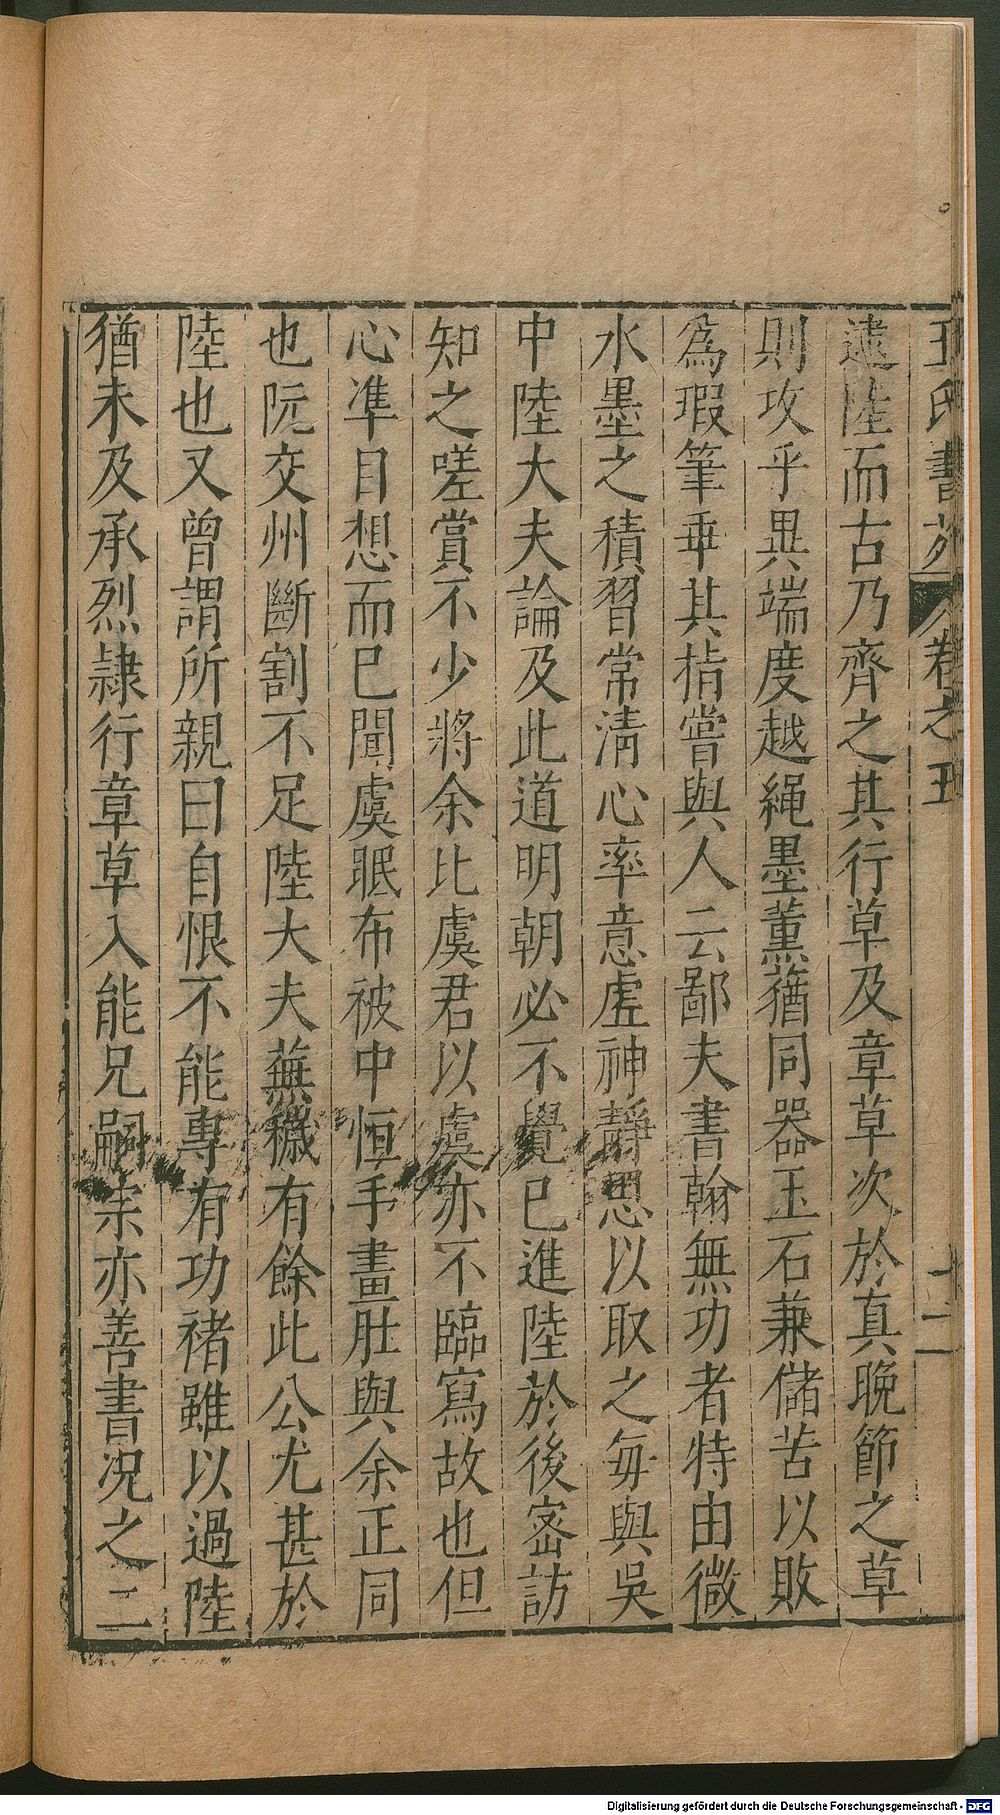 王氏書苑 卷之五 十二
逮陸而古乃齊之其行草及章草次於真晚節之草
則攻乎異端度越繩墨薰蕕同器玉石兼儲苦以敗
為瑕筆垂其指嘗與人云鄙夫書翰無功者特由微
水墨之積習常清心率意虛神靜思以取之每與吳
中陸大夫論及此道明朝必不覺已進陸於後密訪
知之嗟賞不少將余比虞君以虞亦不臨寫故也但
心準目想而已聞虞眠布被中恒手畫肚與余正同
也阮交州斷割不足陸大夫蕪穢有餘此公尤甚於
陸也又曾謂所親曰自恨不能專有功褚雖以過陸
猶未及承烈隸行章草入能兄嗣宗亦善書況之二
Digitalisierung gefördert durch die Deutsche Forschungsgemeinschaft - DFG